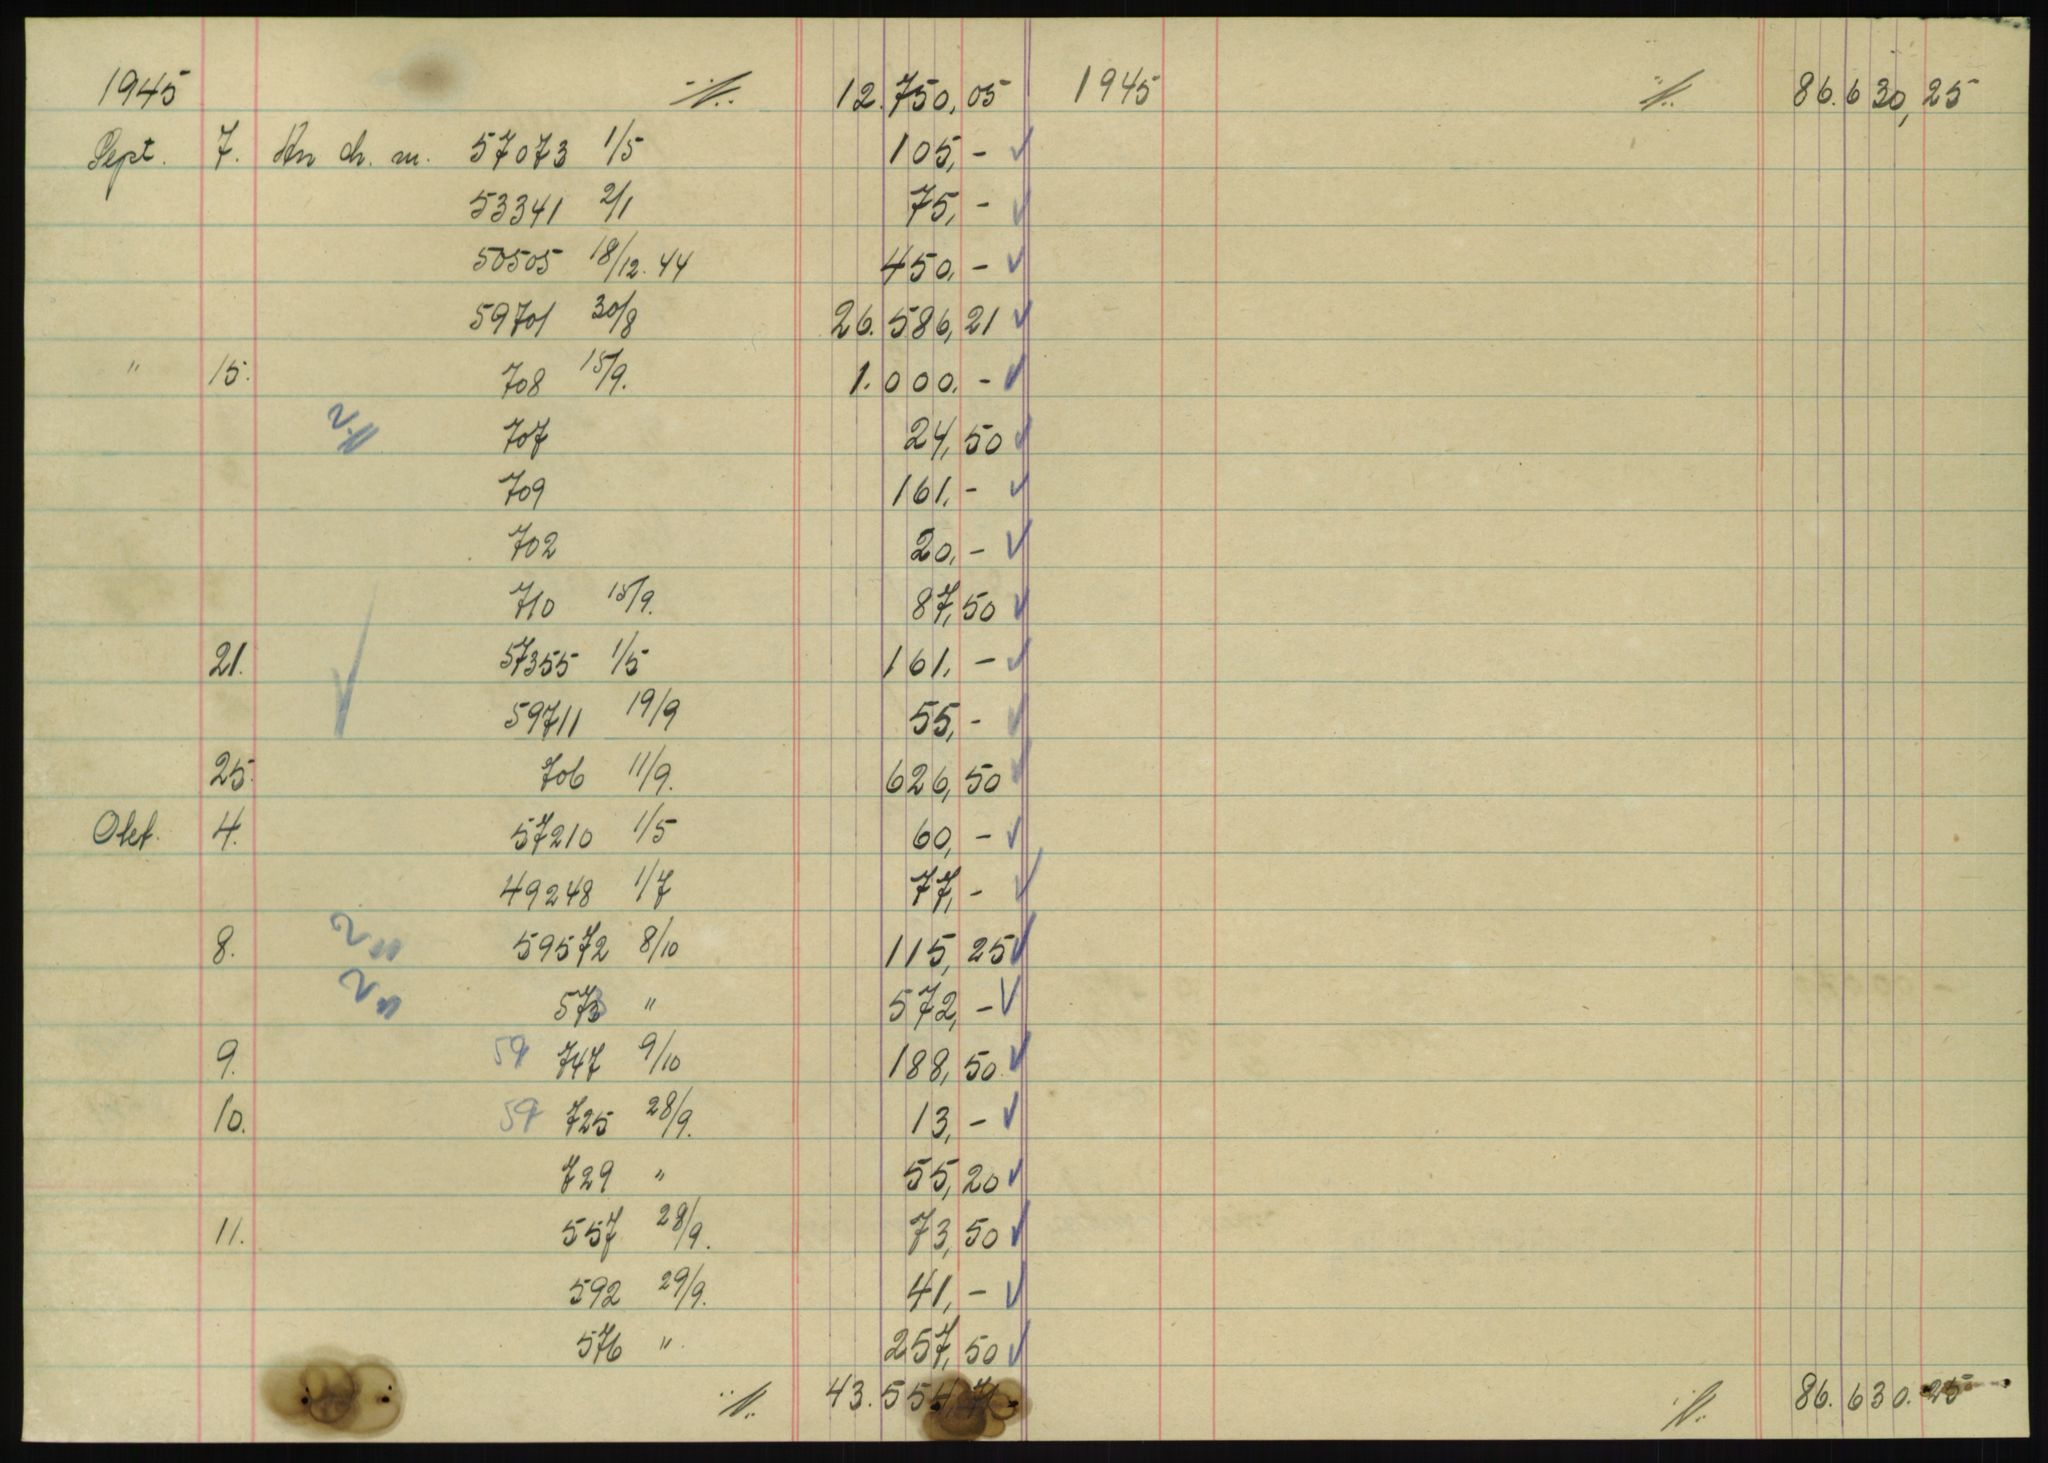 1945 12.750,05 1945 86.630,25
Sept. 7. An ch. m. 57073 1/5 105,- ✓
53341 2/1 75,- ✓
50505 18/12.44 450,- ✓
59701 30/8 26.586,21 ✓
" 15. 708 15/9. 1.000,- ✓
707 24,50 ✓
709 161,- ✓
702 20,- ✓
710 15/9. 87,50 ✓
21. 57355 1/5 161,- ✓
✓ 59711 19/9 55,- ✓
25. 706 11/9. 626,50 ✓
Okt. 4. 57210 1/5 60,- ✓
49248 1/7 77,- ✓
8. 59572 8/10 115,25 ✓
573 " 572,- ✓
9. 59 747 9/10 188,50 ✓
10. 59 725 28/9. 13,- ✓
729 " 55,20 ✓
11. 557 28/9. 73,50 ✓
592 29/9. 41,- ✓
576 " 257,50 ✓
43.554,71 86.630.25